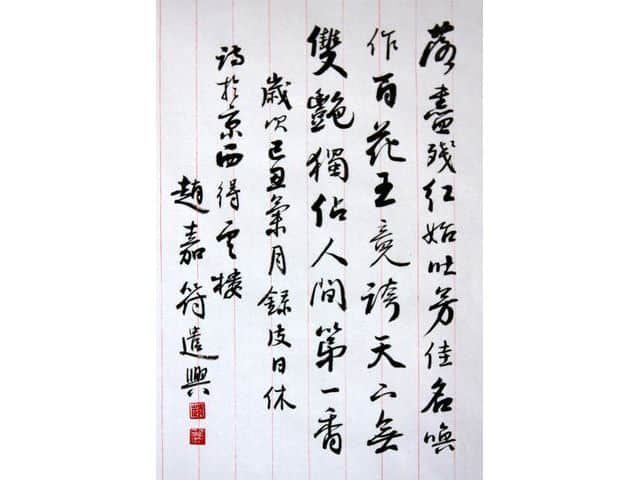 落盡残红始吐芳佳名喚
作百花王竞誇天下無
雙艷獨佔人間第一香
歲次己丑月録皮日休
詩於京西得雲樓
趙嘉符遣興